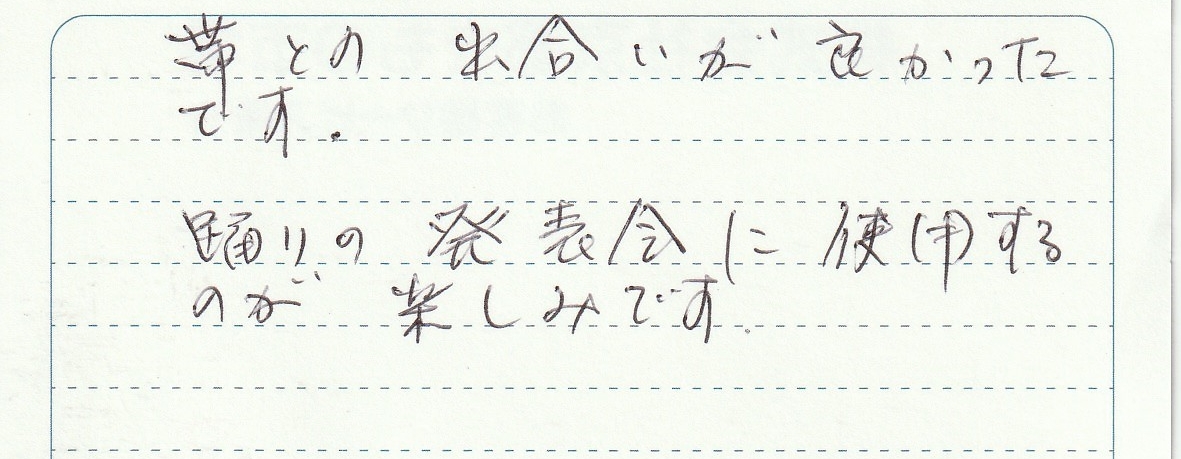 帯との出合いが良かった
です.
踊りの発表会に使用する
のが楽しみです.